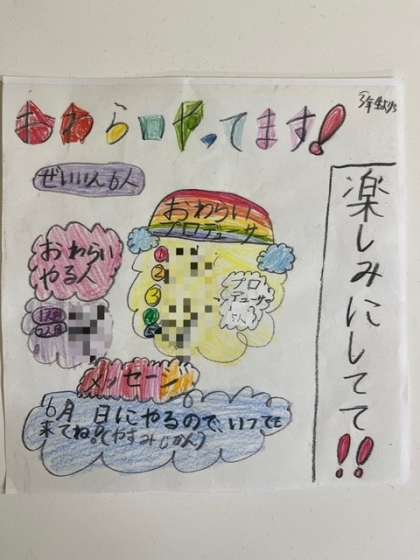 おわらいやってます!
ぜいいん6人
おわらい
プロデューサー
おわらい
やる人
①
②
③
④
プロ
デューサー
5人
メッセージ
6月 日にやるので、
来てね!(やすみじかん)
楽しみにしてて!!